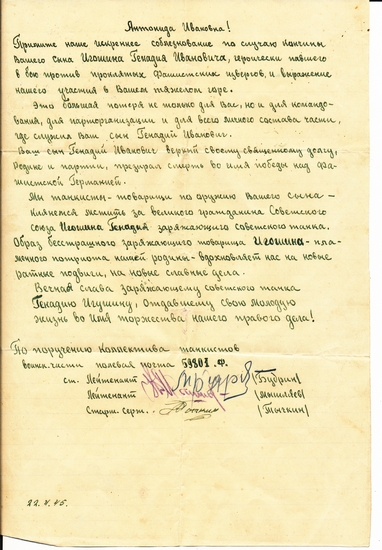 Антонида Ивановна!
Примите наше искреннее соболезнование по случаю кончины
Вашего сына Игошина Генадия Ивановича, геройски павшего
в бою против проклятых фашистских извергов, и выражение
нашего участия в Вашем тяжелом горе.
Это большая потеря не только для Вас, но и для командо-
вания, для парторганизации и для всего личного состава части,
где служил Ваш сын Генадий Иванович.
Ваш сын Генадий Иванович верный своему священному долгу,
Родине и партии, презирал смерть во имя победы над фа-
шистской Германией.
Мы танкисты-товарищи по оружию Вашего сына-
клянемся отомстить за великого гражданина Советского
союза Игошина Генадия заряжающего советского танка.
Образ бесстрашного заряжающего товарища Игошина-пла-
менного патриота нашей родины-вдохновляет нас на новые
ратные подвиги, на новые славные дела.
Вечная слава заряжающему советского танка
Генадию Игушину, отдавшему свою молодую
жизнь во имя торжества нашего правого дела!
По поручению коллектива танкистов
воинск. части полевая почта 59801 "Ф.
ст. Лейтенант (Бударин)
Лейтенант (Мишляев)
Старш. серж. (Тычкин)
22.V.45.